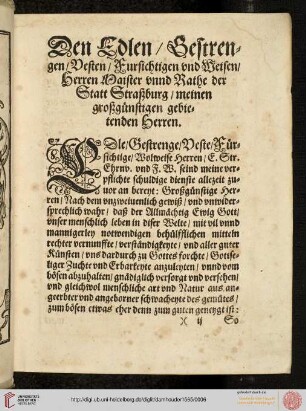 Den Edlen / Gestren-
gen / Vesten / Fursichtigen vnd Weisen /
Herren Maister vnnd Rathe der
Statt Straßburg / meinen
großgünstigen gebie-
tenden Herren.
EDle / Gestrenge / Veste / Für-
sichtige / Wolweise Herren / E. Str.
Ehrnv. vnd F. W. seind meine ver-
pflichte schuldige dienste allezeit zu-
uor an bereyt: Großgünstige Her-
ren / Nach dem vnzweiuenlich gewiß / vnd vnwider-
sprechlich wahr / daß der Allmächtig Ewig Gott /
vnser menschlich leben in diser Welte / mit vil vnnd
mannigerley notwendigen behülfflichen mitteln
rechter vernunffte / verständigkeyte / vnd aller guter
Künsten / vns dardurch zu Gottes forchte / Gottse-
liger Zuchte vnd Erbarkeyte anzuleyten / vnnd vom
bösen abzuhalten / gnädiglich versorgt vnd versehen /
vnd gleichwol menschliche art vnd Natur aus an-
geerbter vnd angeborner schwacheyte des gemütes /
zum bösen etwas eher denn zum guten geneygt ist:
)( ij So
http://digi.ub.uni-heidelberg.de/diglit/damhouder1565/0006